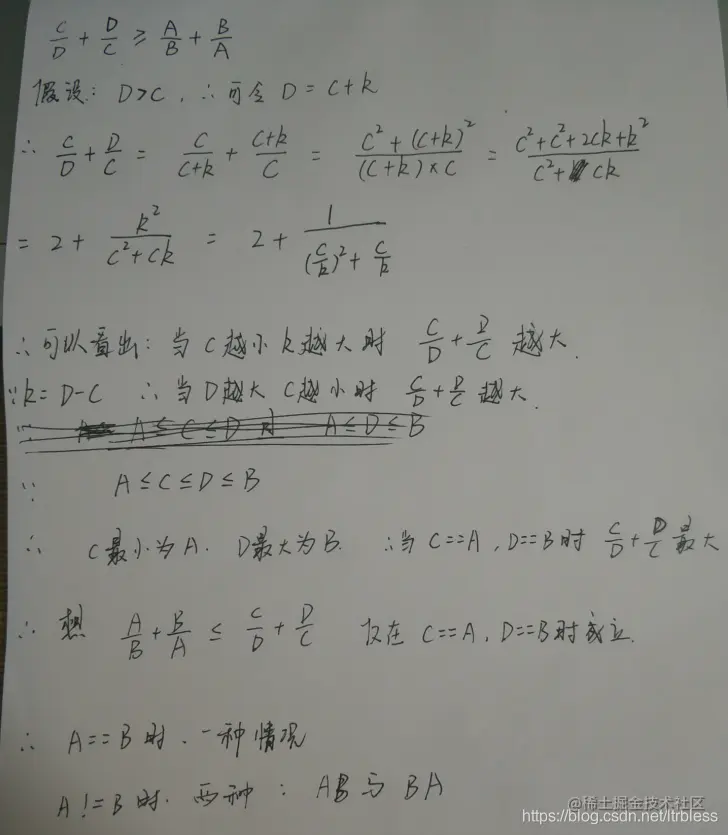 C/D + D/C ≥ A/B + B/A
假设: D>C, ∴可令 D = C+k
∴ C/D + D/C = C/(C+k) + (C+k)/C = (C²+(C+k)²)/((C+k)×C) = (C²+C²+2Ck+k²)/(C²+Ck)
= 2 + k²/(C²+Ck) = 2 + 1/((C/k)²+C/k)
∴可以看出: 当 C越小 k越大时 C/D + D/C 越大.
∵k = D-C ∴当D越大 C越小时 C/D + D/C 越大.
∵ A≤C≤D A≤D≤B
∵ A≤C≤D≤B
∴ C最小为A. D最大为B. ∴当 C==A, D==B时 C/D + D/C 最大
∴ 想 A/B + B/A ≤ C/D + D/C 仅在 C==A, D==B时成立.
∴ A==B时. 一种情况
A!=B时. 两种: AB与BA
@稀土掘金技术社区
https://blog.csdn.net/ltrbless